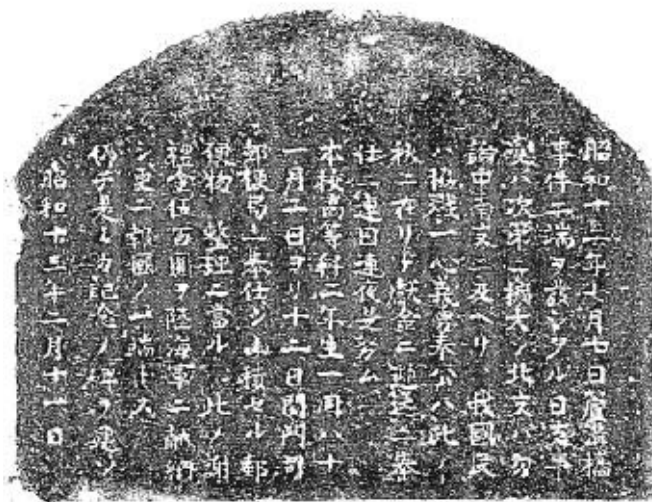 昭和十二年七月七日蘆溝橋
事件ニ端ヲ發シタル日支事
變ハ次第ニ擴大シ北支ハ勿
論中南支ニ及ヘリ 我國民
ハ協戮一心義勇奉公ハ此ノ
秋ニ在リト獻金ニ送ニ奉
仕ニ連日連夜是努ム
本校高等科二年生一同ハ十
一月一日ヨリ十二日間門司
郵便局ニ奉仕シ山積セル郵
便物ノ整理ニ當ル 此ノ謝
禮金伍百圓ヲ陸海軍ニ献納
シ更ニ報國ノ一端トス
仍テ是レカ記念ノ碑ヲ建ツ
昭和十三年二月十一日